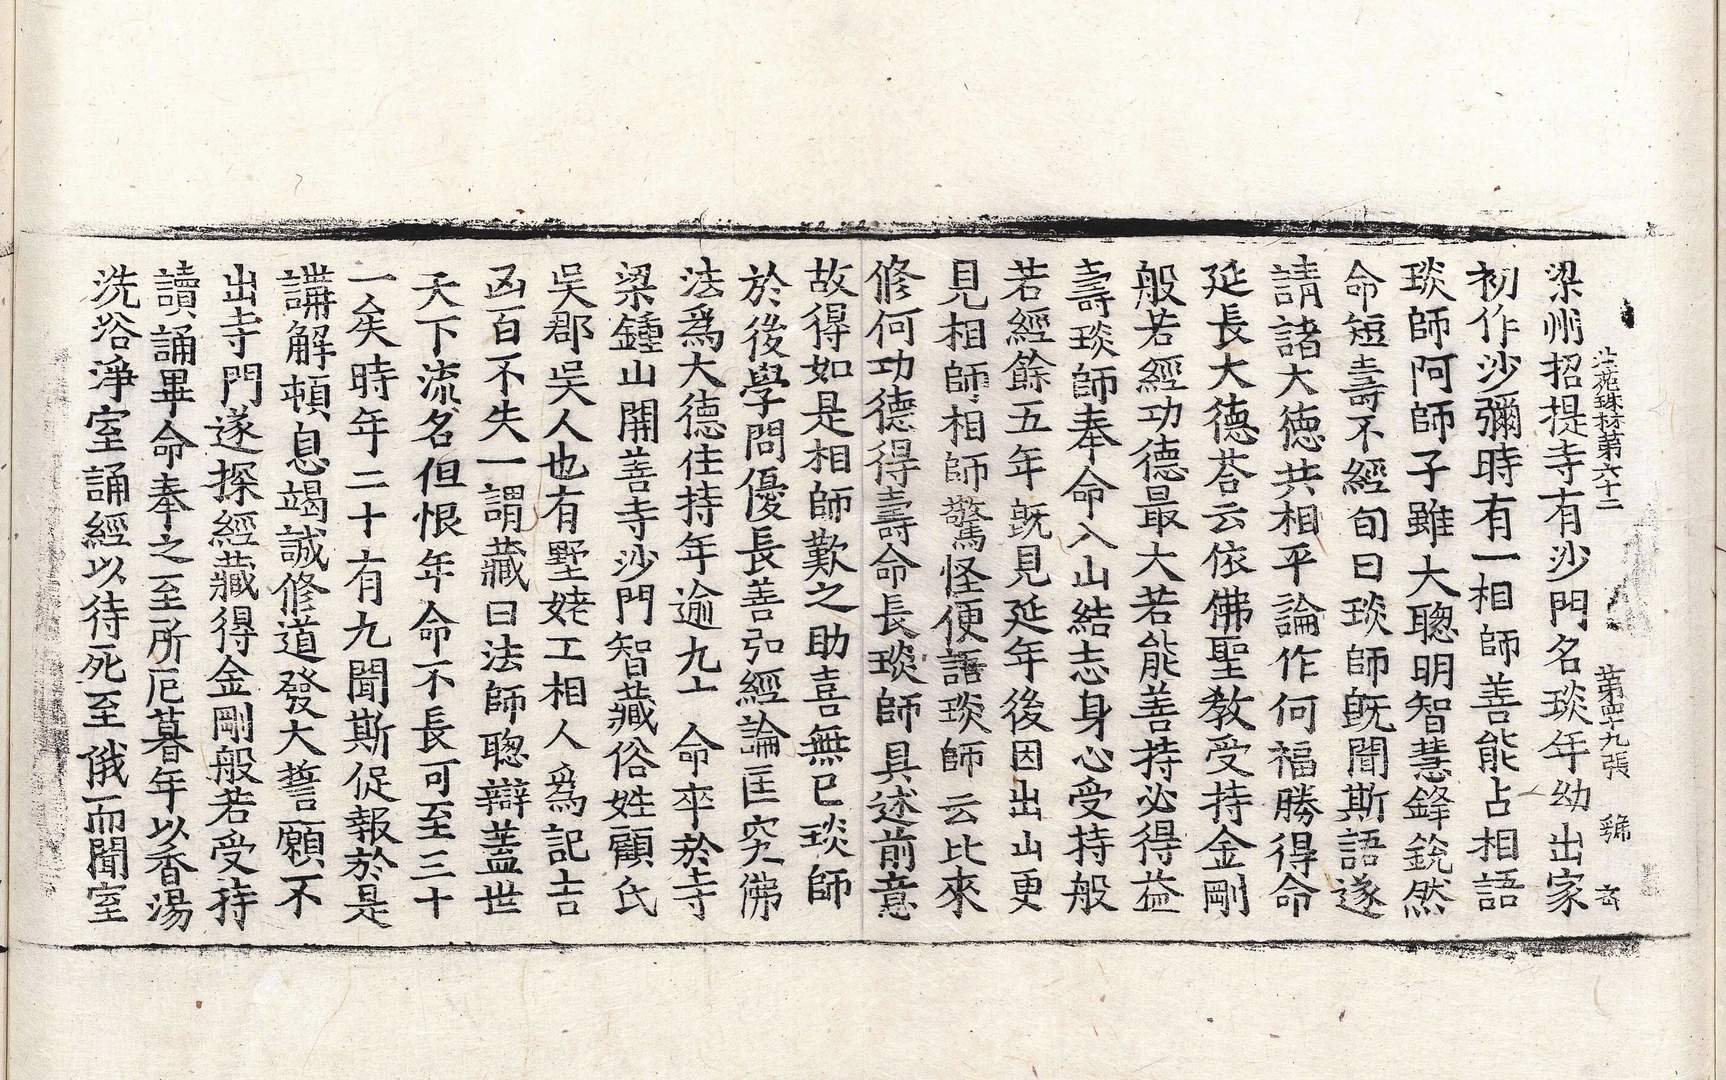 法苑珠林第六十二　第四十九張　㱔
梁州招提寺有沙門名琰年幼出家
初作沙彌時有一相師善能占相語
琰師阿師子雖大聰明智慧鋒銳然
命短壽不經旬日琰師旣聞斯語遂
請諸大德共相平論作何福勝得命
延長大德荅云依佛聖教受持金剛
般若經功德最大若能善持必得益
壽琰師奉命入山結志身心受持般
若經餘五年旣見延年後因出山更
見相師相師驚怪便語琰師云比來
修何功德得壽命長琰師具述前意
故得如是相師歎之助喜無已琰師
於後學問優長善弘經論匡究佛
法爲大德住持年逾九十命卒於寺
梁鍾山開善寺沙門智藏俗姓顧氏
吳郡吳人也有墅姥工相人爲記吉
凶百不失一謂藏曰法師聰辯蓋世
天下流名但恨年命不長可至三十
一矣時年二十有九聞斯促報於是
講解頓息竭誠修道發大誓願不
出寺門遂探經藏得金剛般若受持
讀誦畢命奉之至所厄暮年以香湯
洗浴淨室誦經以待死至俄而聞室